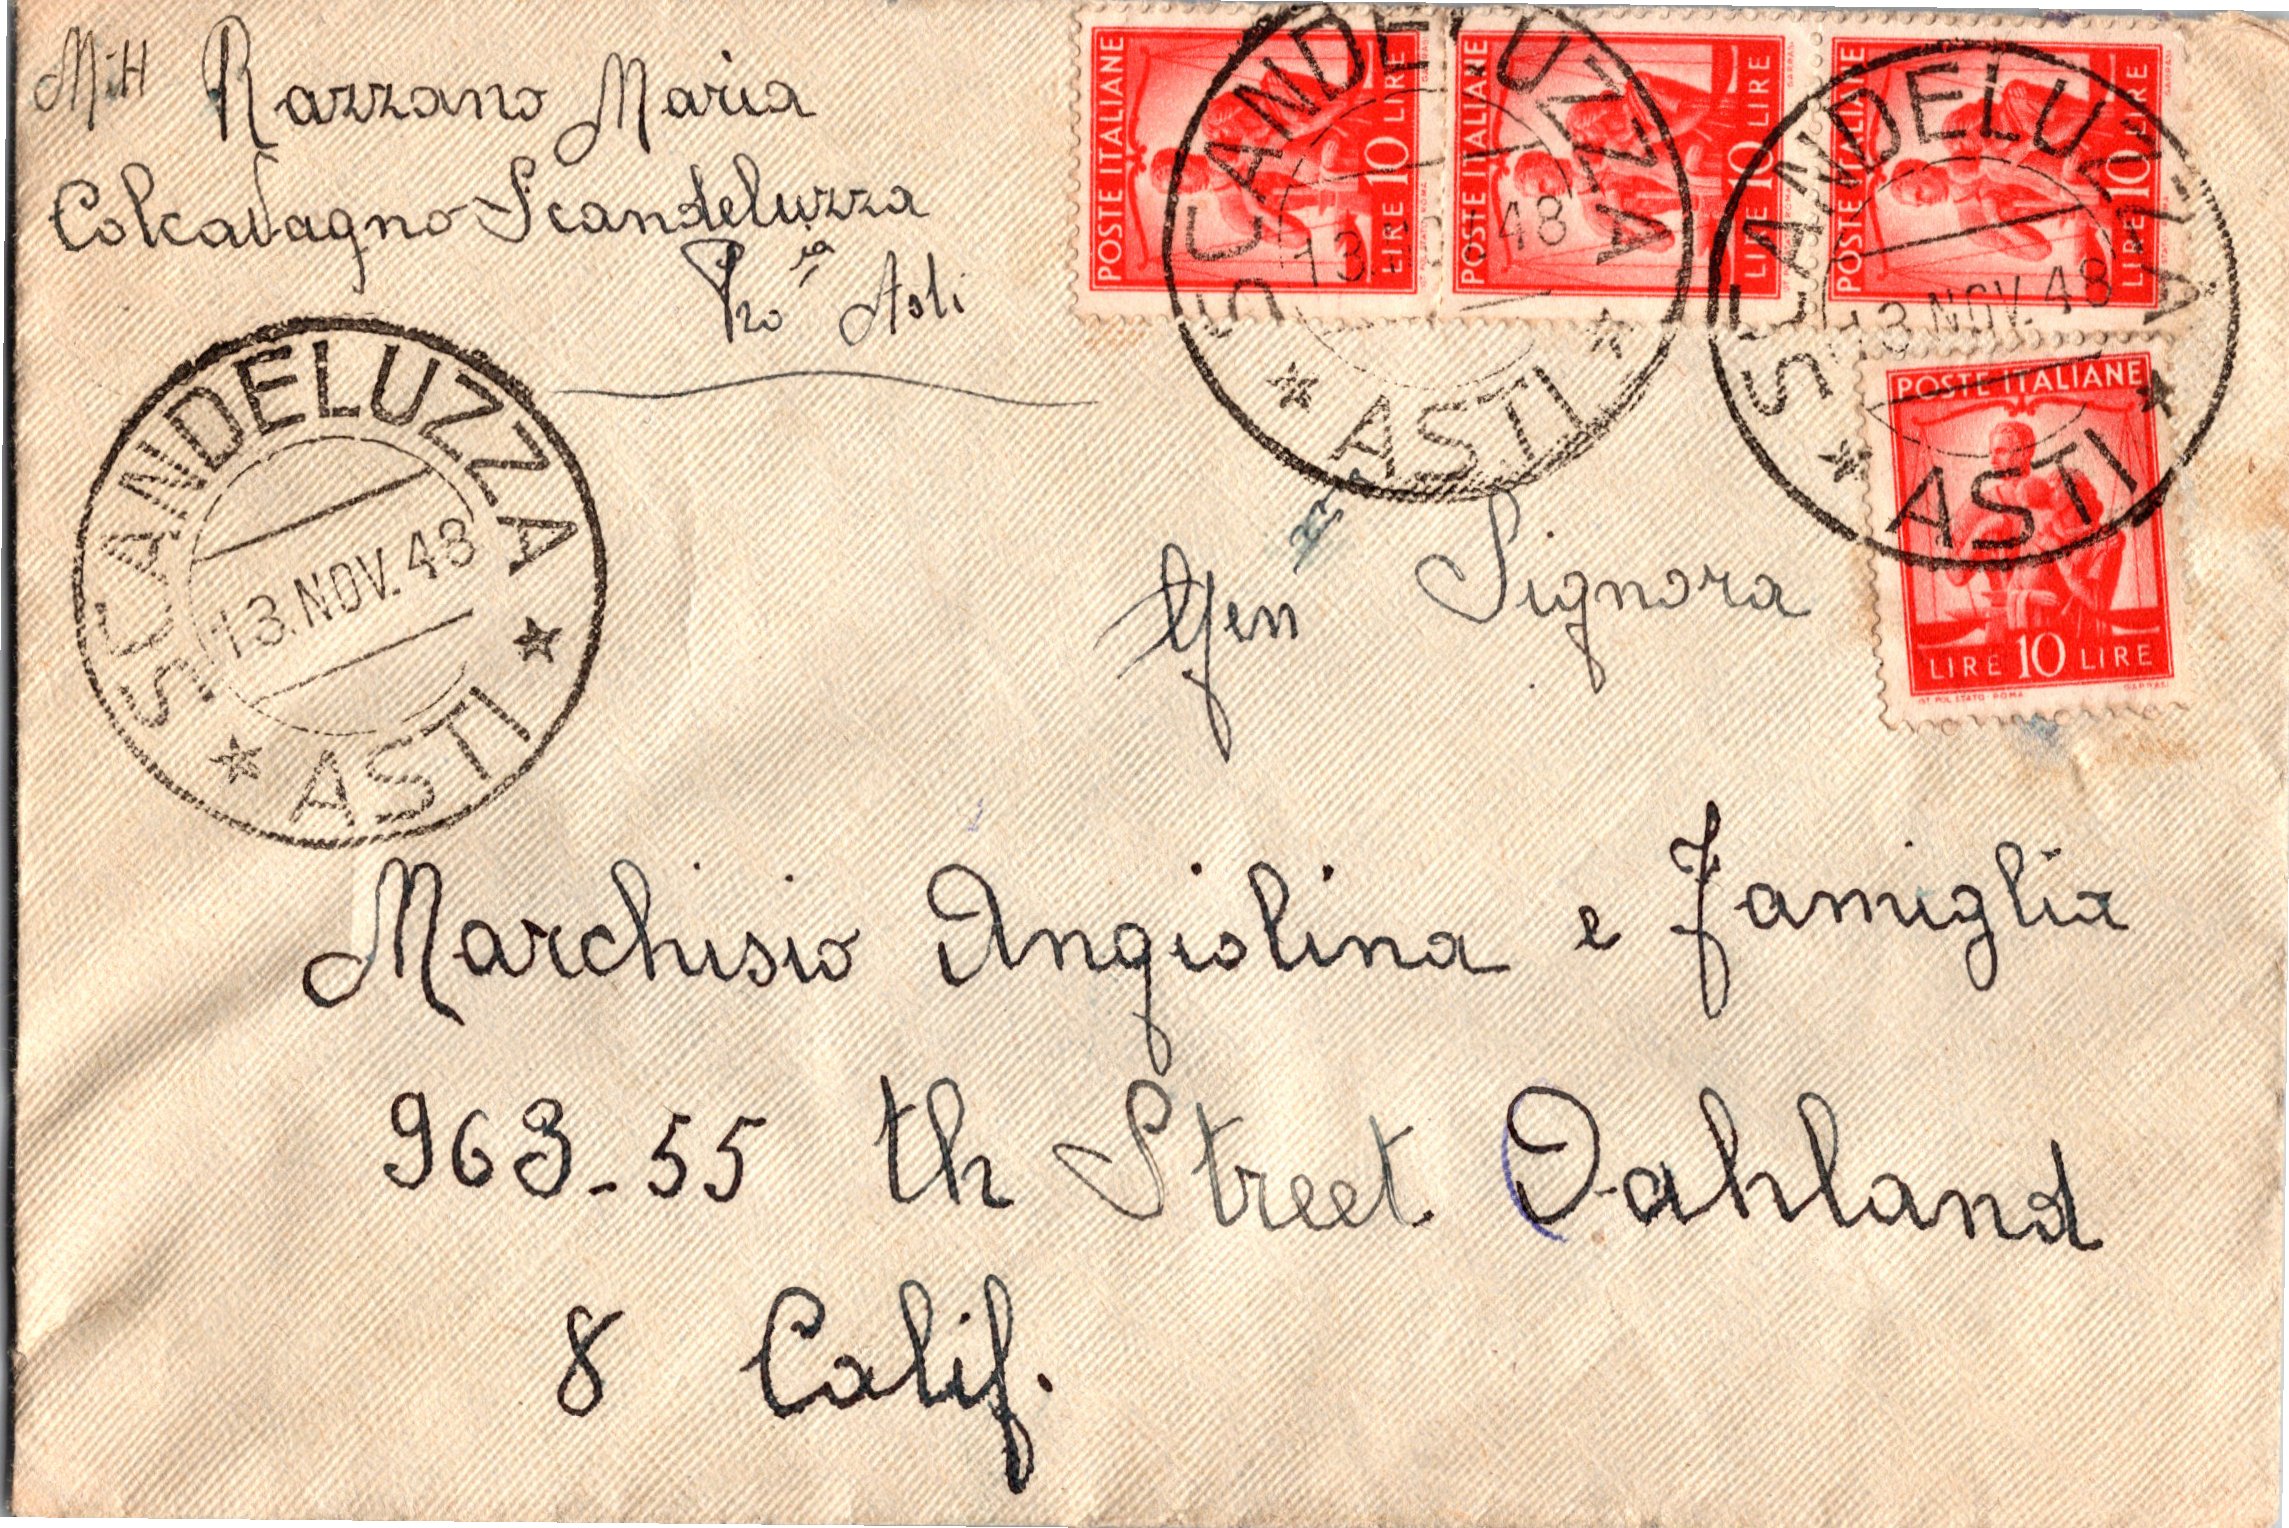 Mitt Razzano Maria
Colcavagno-Scandeluzza
Pro ia Asti
POSTE ITALIANE
LIRE 10 LIRE
POSTE ITALIANE
LIRE 10 LIRE
POSTE ITALIANE
LIRE 10 LIRE
POSTE ITALIANE
LIRE 10 LIRE
IST. POL. STATO ROMA
SCANDELUZZA
13. NOV. 48
ASTI
SCANDELUZZA
13 NOV. 48
ASTI
SCANDELUZZA
13. NOV. 48
ASTI
Gen Signora
Marchisio Angiolina e Famiglia
963-55 th Street Oahland
8 Calif.